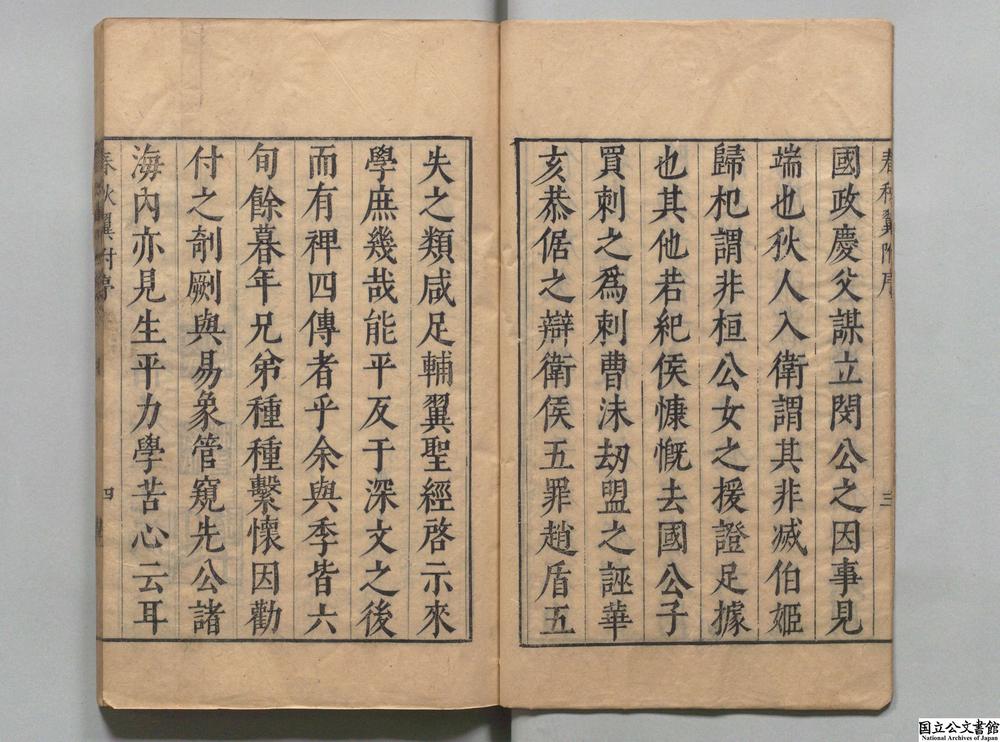 春秋翼附序
三
國政慶父謀立閔公之因事見
端也狄人入衛謂其非滅伯姬
歸杞謂非桓公女之援證足據
也其他若紀侯慷慨去國公子
買刺之爲刺曹沬劫盟之誣華
亥恭倨之辯衛侯五罪趙盾五
失之類咸足輔翼聖經啓示來
學庶幾哉能平反于深文之後
而有裨四傳者乎余與季皆六
旬餘暮年兄弟種種繫懷因勸
付之剞劂與易象管窺先公諸
海內亦見生平力學苦心云耳
春秋翼附
四
国立公文書館
National Archives of Japan